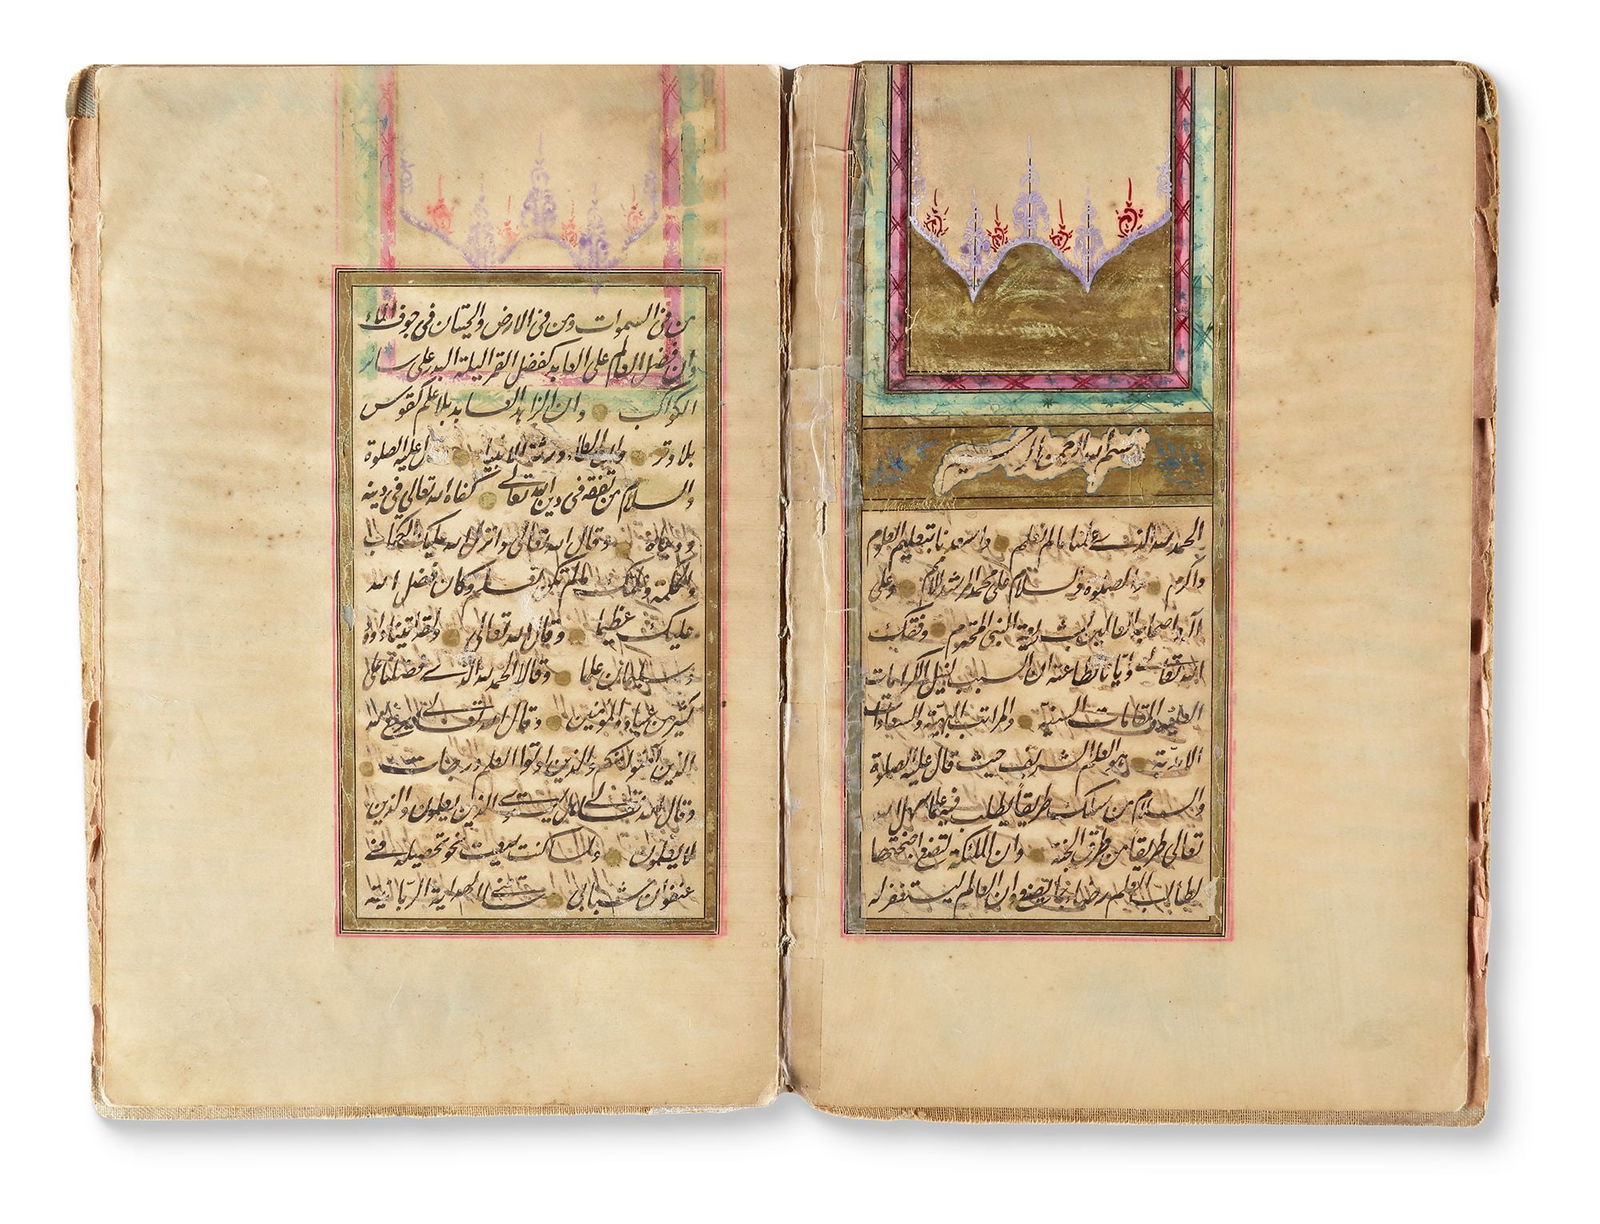 بسم الله الرحمن الرحيم
الحمد لله الذي علمنا ما لم نعلم واسعدنا بتعليم العلوم
واكرم والصلوة والسلام على محمد المرشد للامم وعلى
آله واصحابه العالمين بشريعة النبي المحترم وفقك
الله تعالى وايانا لطاعته ان السبب لنيل الكرامات
العلية والمقامات السنية والمراتب البهية والسعادات
الابدية هو العلم الشريف حيث قال عليه الصلوة
والسلام من سلك طريقا يطلب فيه علما سهل الله
تعالى طريقا من طرق الجنة وان الملئكة لتضع اجنحتها
لطالب العلم رضاء بما يصنع وان العالم ليستغفر له
من في السموات ومن في الارض والحيتان في جوف الماء
وان فضل العالم على العابد كفضل القمر ليلة البدر على سائر
الكواكب وان الزاهد العابد بلا علم كقوس
بلا وتر وان العلماء ورثة الانبياء قال عليه الصلوة
والسلام من تفقه في دين الله تعالى كفاه الله تعالى في دينه
ودنياه وقال الله تعالى وانزل الله عليك الكتاب
والحكمة وعلمك ما لم تكن تعلم وكان فضل الله
عليك عظيما وقال الله تعالى ولقد اتينا داود
وسليمان علما وقالا الحمد لله الذي فضلنا على
كثير من عباده المؤمنين وقال الله تعالى يرفع الله
الذين آمنوا منكم والذين اوتوا العلم درجات
وقال الله تعالى هل يستوي الذين يعلمون والذين
لا يعلمون ولما كنت سعيت نحو تحصيله في
عنفوان شبابي ساقتني الهداية الربانية